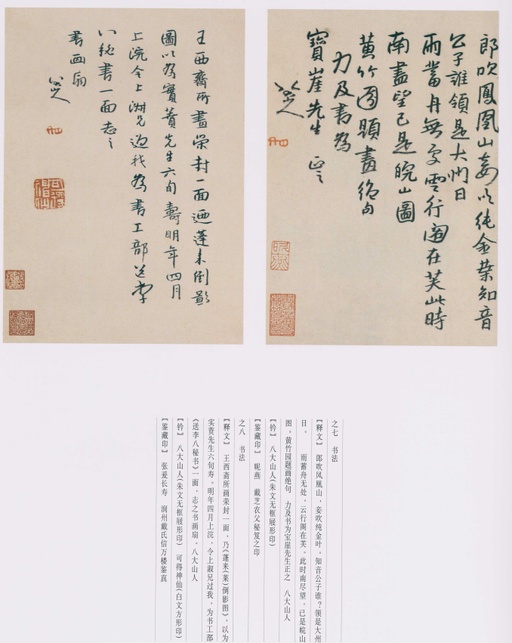 郎吹鳳凰山妾以純金葉知音
公子誰領是大州日
雨蓄舟無處雲行閣在芙此時
南盡望已是皖山圖
黄竹園題畫絶句
力及書為
寶崖先生正之
八大山人
王西齋所畫榮封一面迺蓬来倒影
圖以為實賁先生六旬壽明年四月
上浣令上淑兄過我為書工部送李
八秘書一面志之
書画扇
八大山人
之七 书法
【释文】 郎吹凤凰山，妾吹纯金叶，知音公子谁？领是大州
日。 雨蓄舟无处，云行阁在芙，此时南尽望，已是皖山
图。黄竹园题画绝句，力及书为宝崖先生正之 八大山人
【钤】 八大山人（朱文无框屐形印）
【鉴藏印】 昵燕 戴芝农父秘笈之印
之八 书法
【释文】 王西斋所画荣封一面，乃《蓬来（莱）倒影图》，以为
实赍先生六旬寿。明年四月上浣，令上淑兄过我，为书工部
《送李八秘书》一面，志之书画扇。八大山人
【钤】 八大山人（朱文无框屐形印） 可得神仙（白文方形印）
【鉴藏印】 张爰长寿 润州戴氏信万楼鉴真